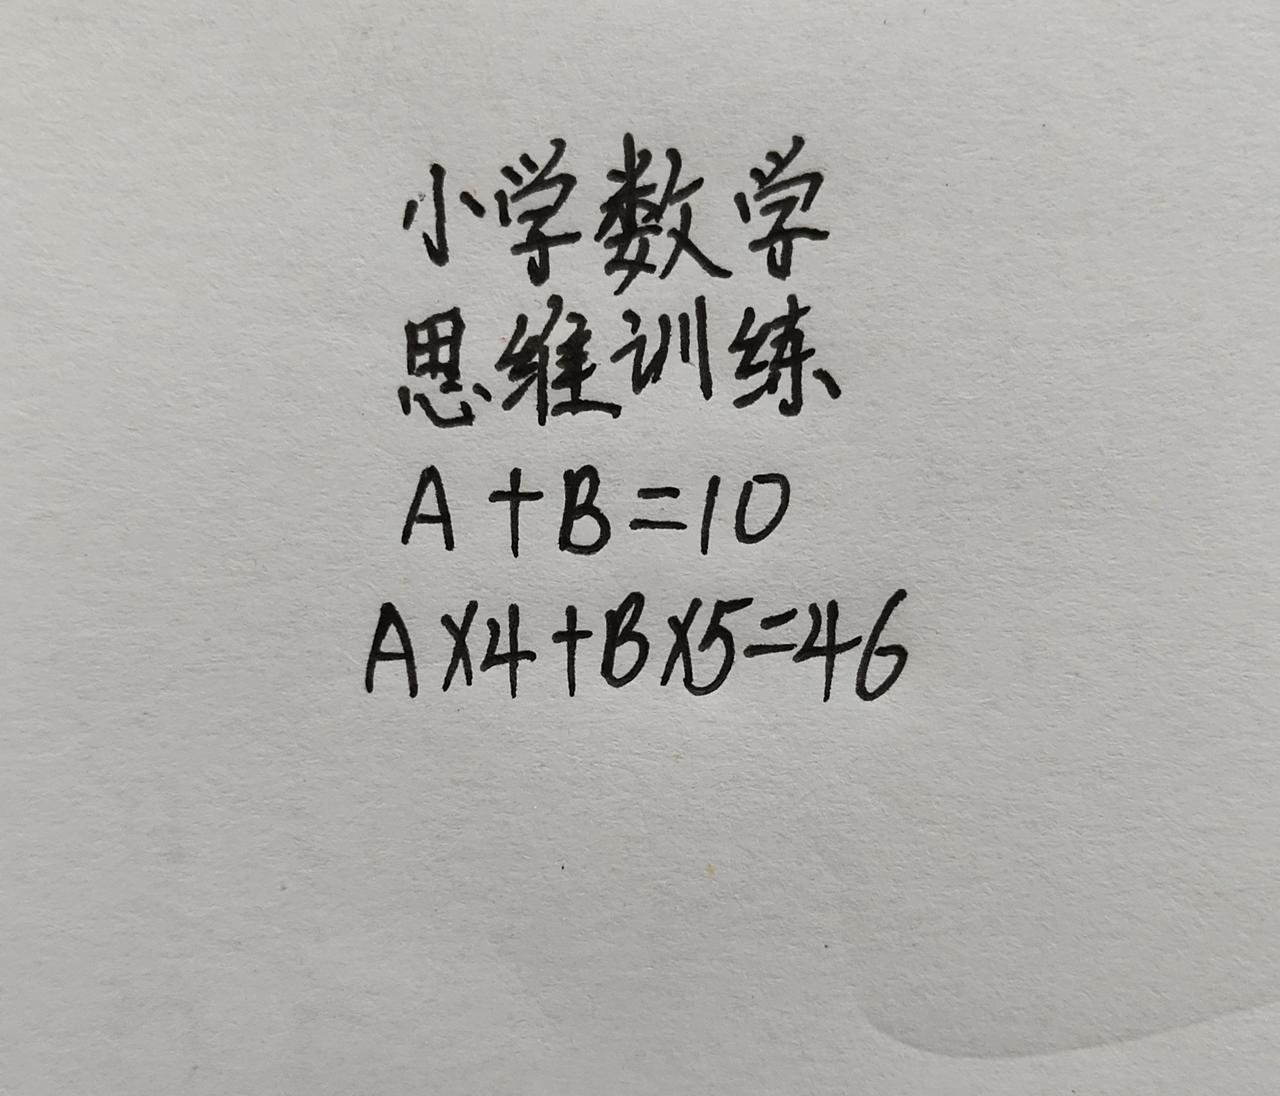 小学数学
思维训练
A+B=10
A×4+B×5=46